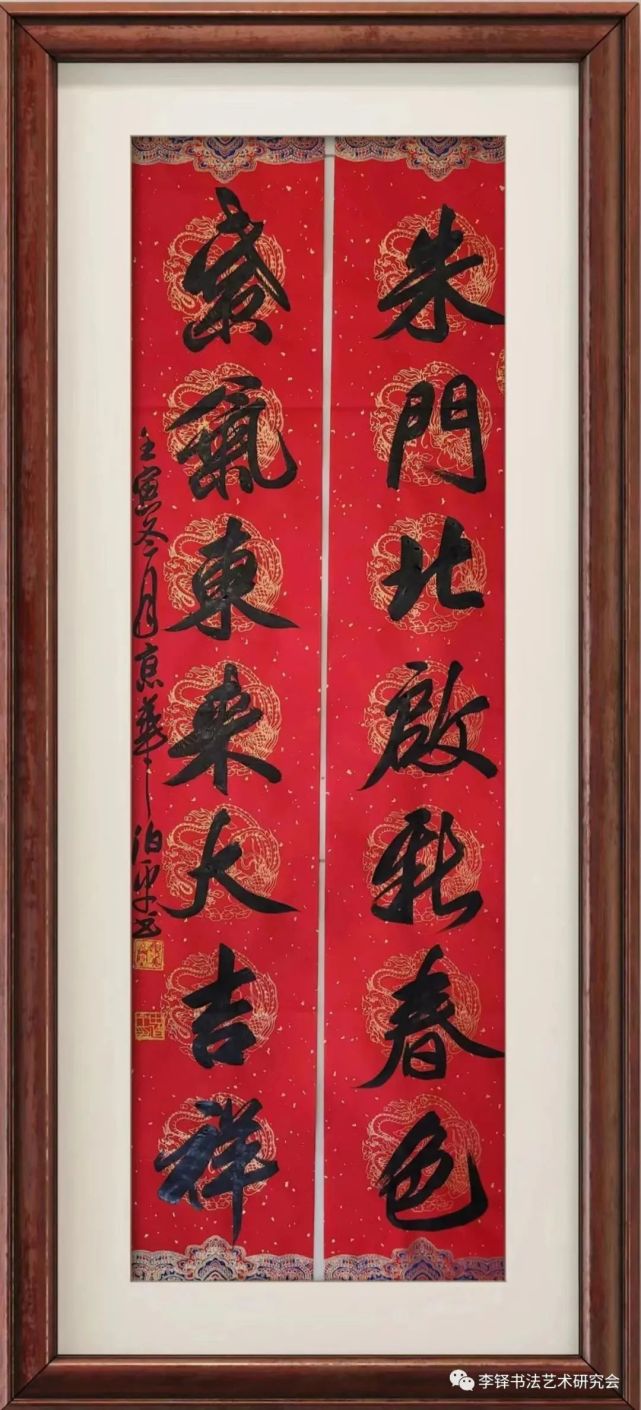 朱門北啟新春色
紫氣東來大吉祥
壬寅冬月京華
李铎书法艺术研究会